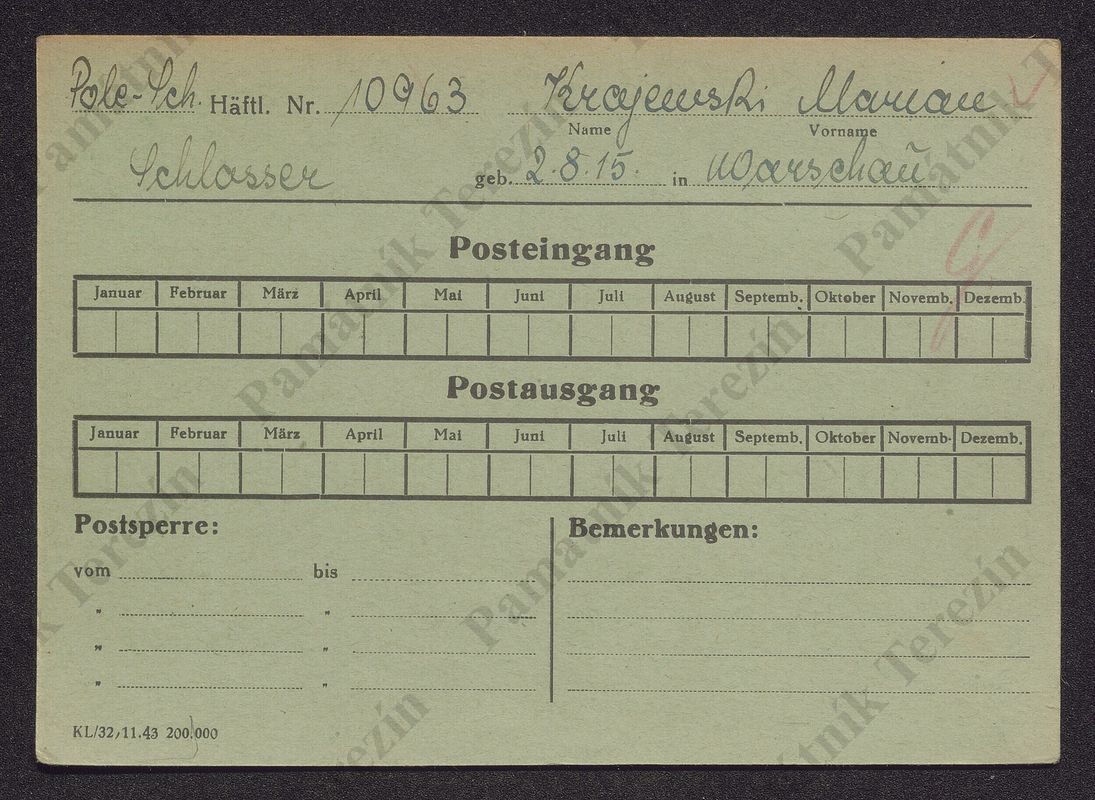 Pole-Sch. Häftl. Nr. 10963 Krajewski Marian
Name Vorname
Schlosser geb. 2.8.15. in Warschau
Posteingang
Januar Februar März April Mai Juni Juli August Septemb. Oktober Novemb. Dezemb.
Postausgang
Januar Februar März April Mai Juni Juli August Septemb. Oktober Novemb. Dezemb.
Postsperre: Bemerkungen:
vom bis
" "
" "
" "
KL/32,11.43 200.000
Památník Terezín